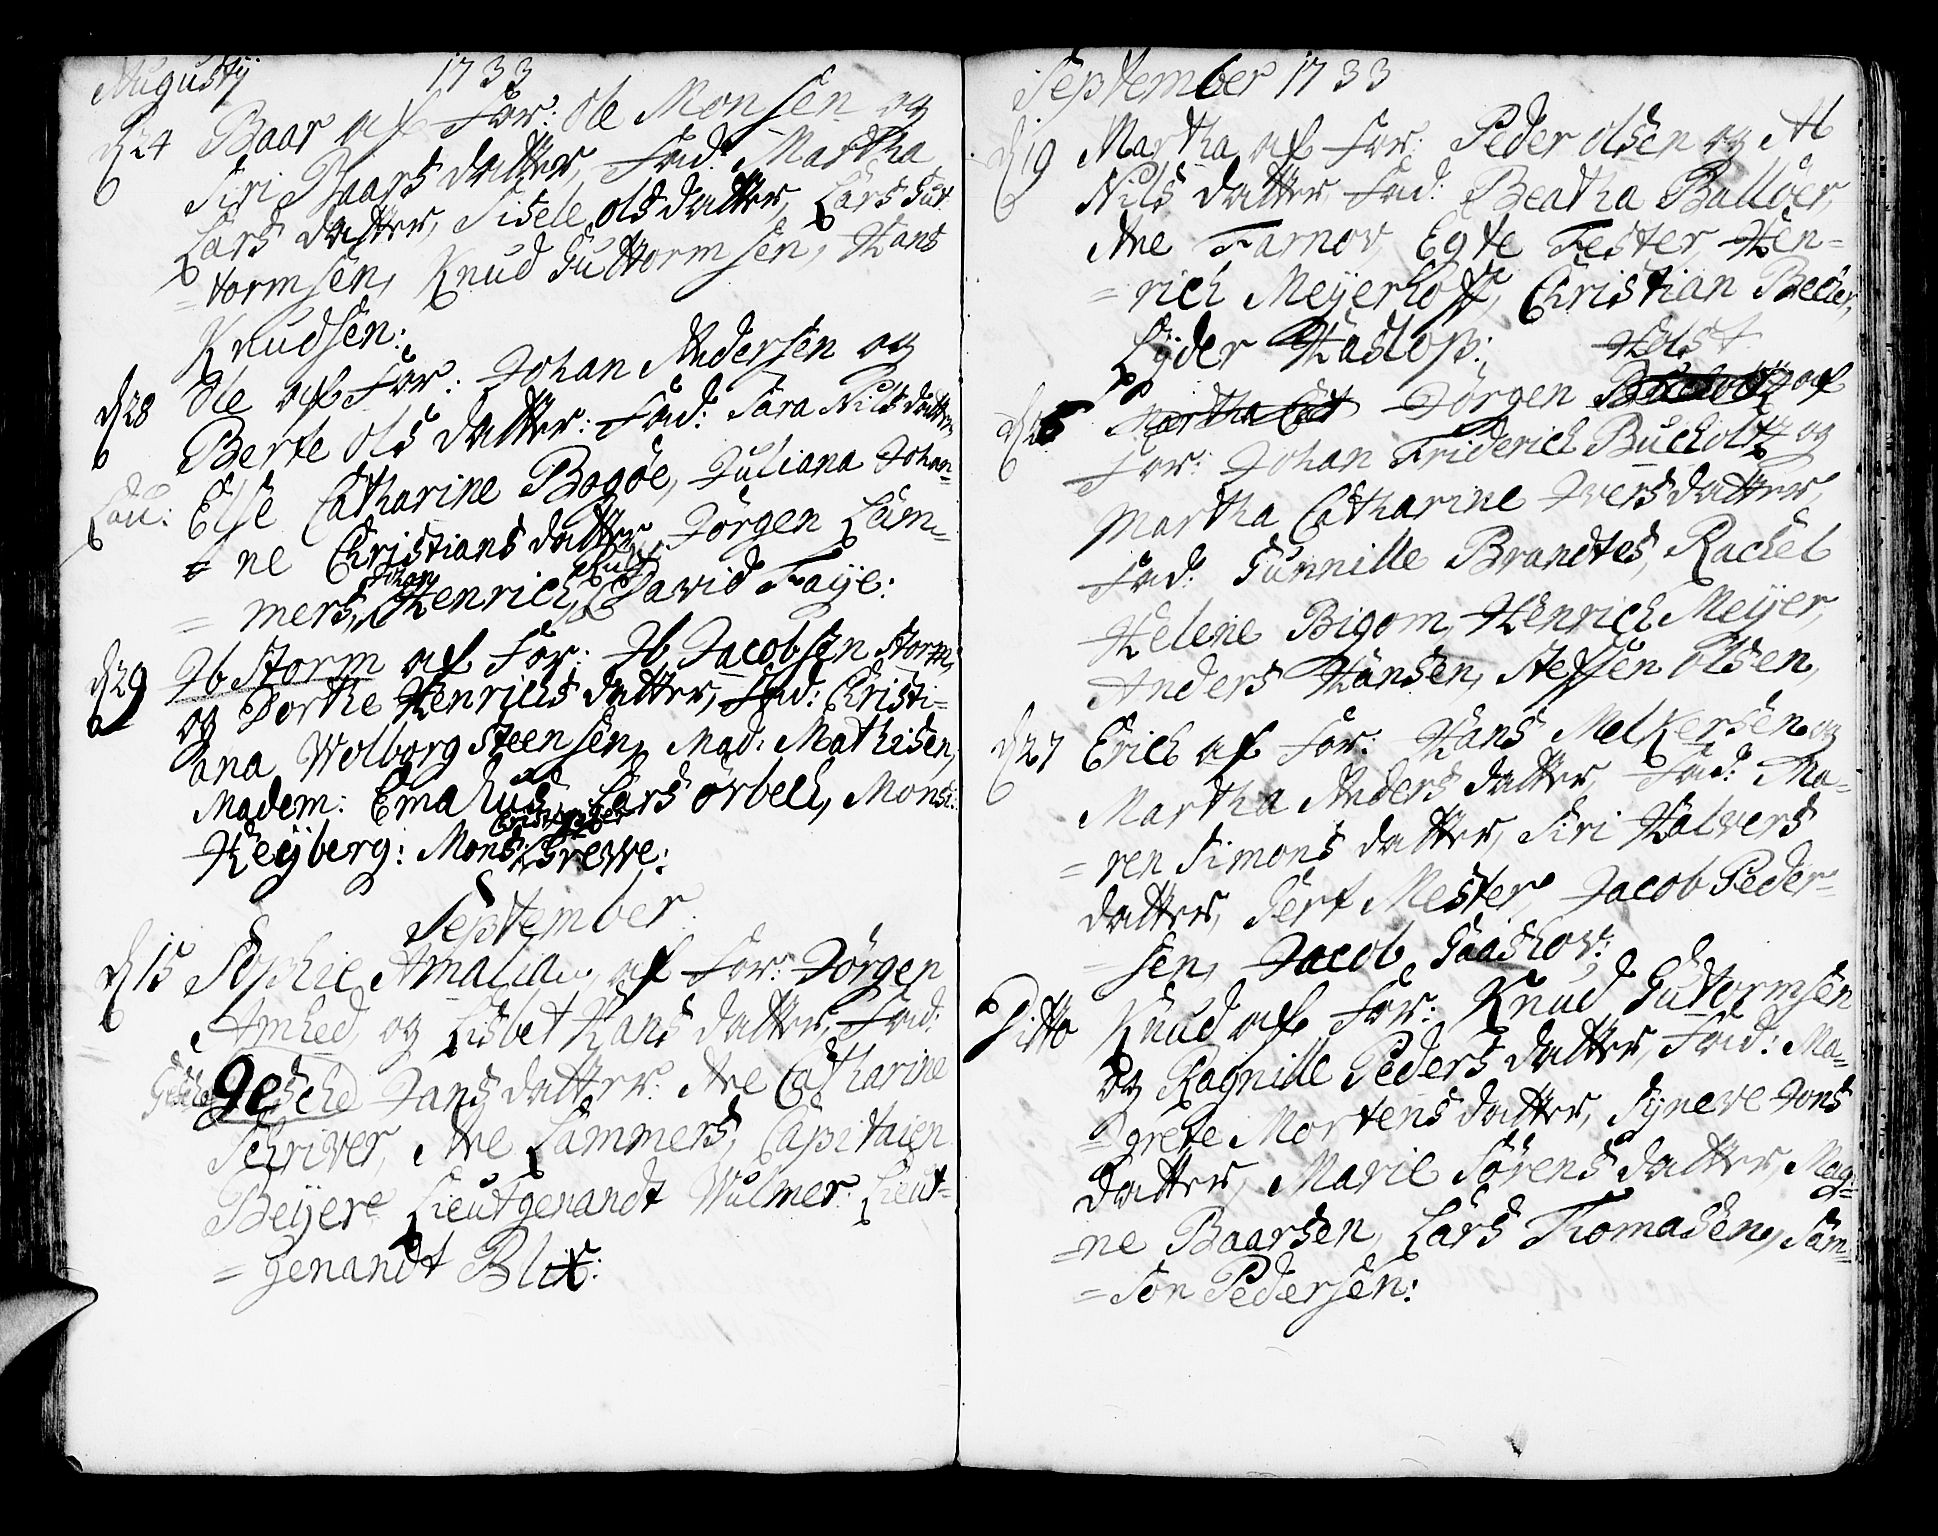 Augustij 1733
d 24 Baar af For: Ole Monsen og
Siri Baars datter, Fad: Martha
Lars datter, Sisele ols datter, Lars Gut
= tormsen, Knud Guttormsen, Hans
Knudsen:
d 28 Ole af For: Johan Andersen og
Berte ols datter: Fad: Sara Nils datter
Else Catharine Bogöe, Juliana Johan-
= ne Christians datter, Jörgen Lam-
= mers, Johan Henrich, David Faije:
d 29 Ib Storm af For: Ib Jacobsen Storm,
og Dorthe Henrichs datter, Fad: Christi=
ana Wolborg Steensen, Mad: Mathisen,
Madem: Emahus, Lars Örbech, Mons:
Heijberg: Mons: Christopher Grewe:
September
d 15 Sophie Amalia af For: Jörgen
Amhed, og Lisbet Hans datter, Fad:
Gesche Jans datter: Ane Catharine
Schriver, Ane Lammers, Capitaien
Beijer Lieutgenandt Wulmer: Lieut=
= genandt Blix:
September 1733
d 19 Martha af For: Peder olsen og A
Nils datter Fad: Beatha Ballöer,
Ane Farnov, Egte Fester, Hen=
= rich Meijerhoff, Christian Becher,
Lyder Haslop:
Holst
Martha Cat Jörgen Bucholtz af
For: Johan Friderich Bucholtz og
Martha Catharine Ivers datter,
Fad: Gunnille Brandtes, Rachel
Helene Bigom, Henrich Meijer,
Anders Hansen, Steffen olsen,
d 27 Erich af For: Hans Melkersen og
Martha Anders datter, Fad: Ma-
= ren Simons datter, Siri Halvers
datter, Gert Mester, Jacob Peder-
= sen, Jacob Gaashov:
Ditto Knud af For: Knud Gutormsen
og Ragnille Peders datter, Fad: Ma=
= grete Mortens datter, Syneve Jons
datter, Marie Sörens datter, Mag=
= ne Baarsen, Lars Thomasen, Sam=
= son Pedersen: